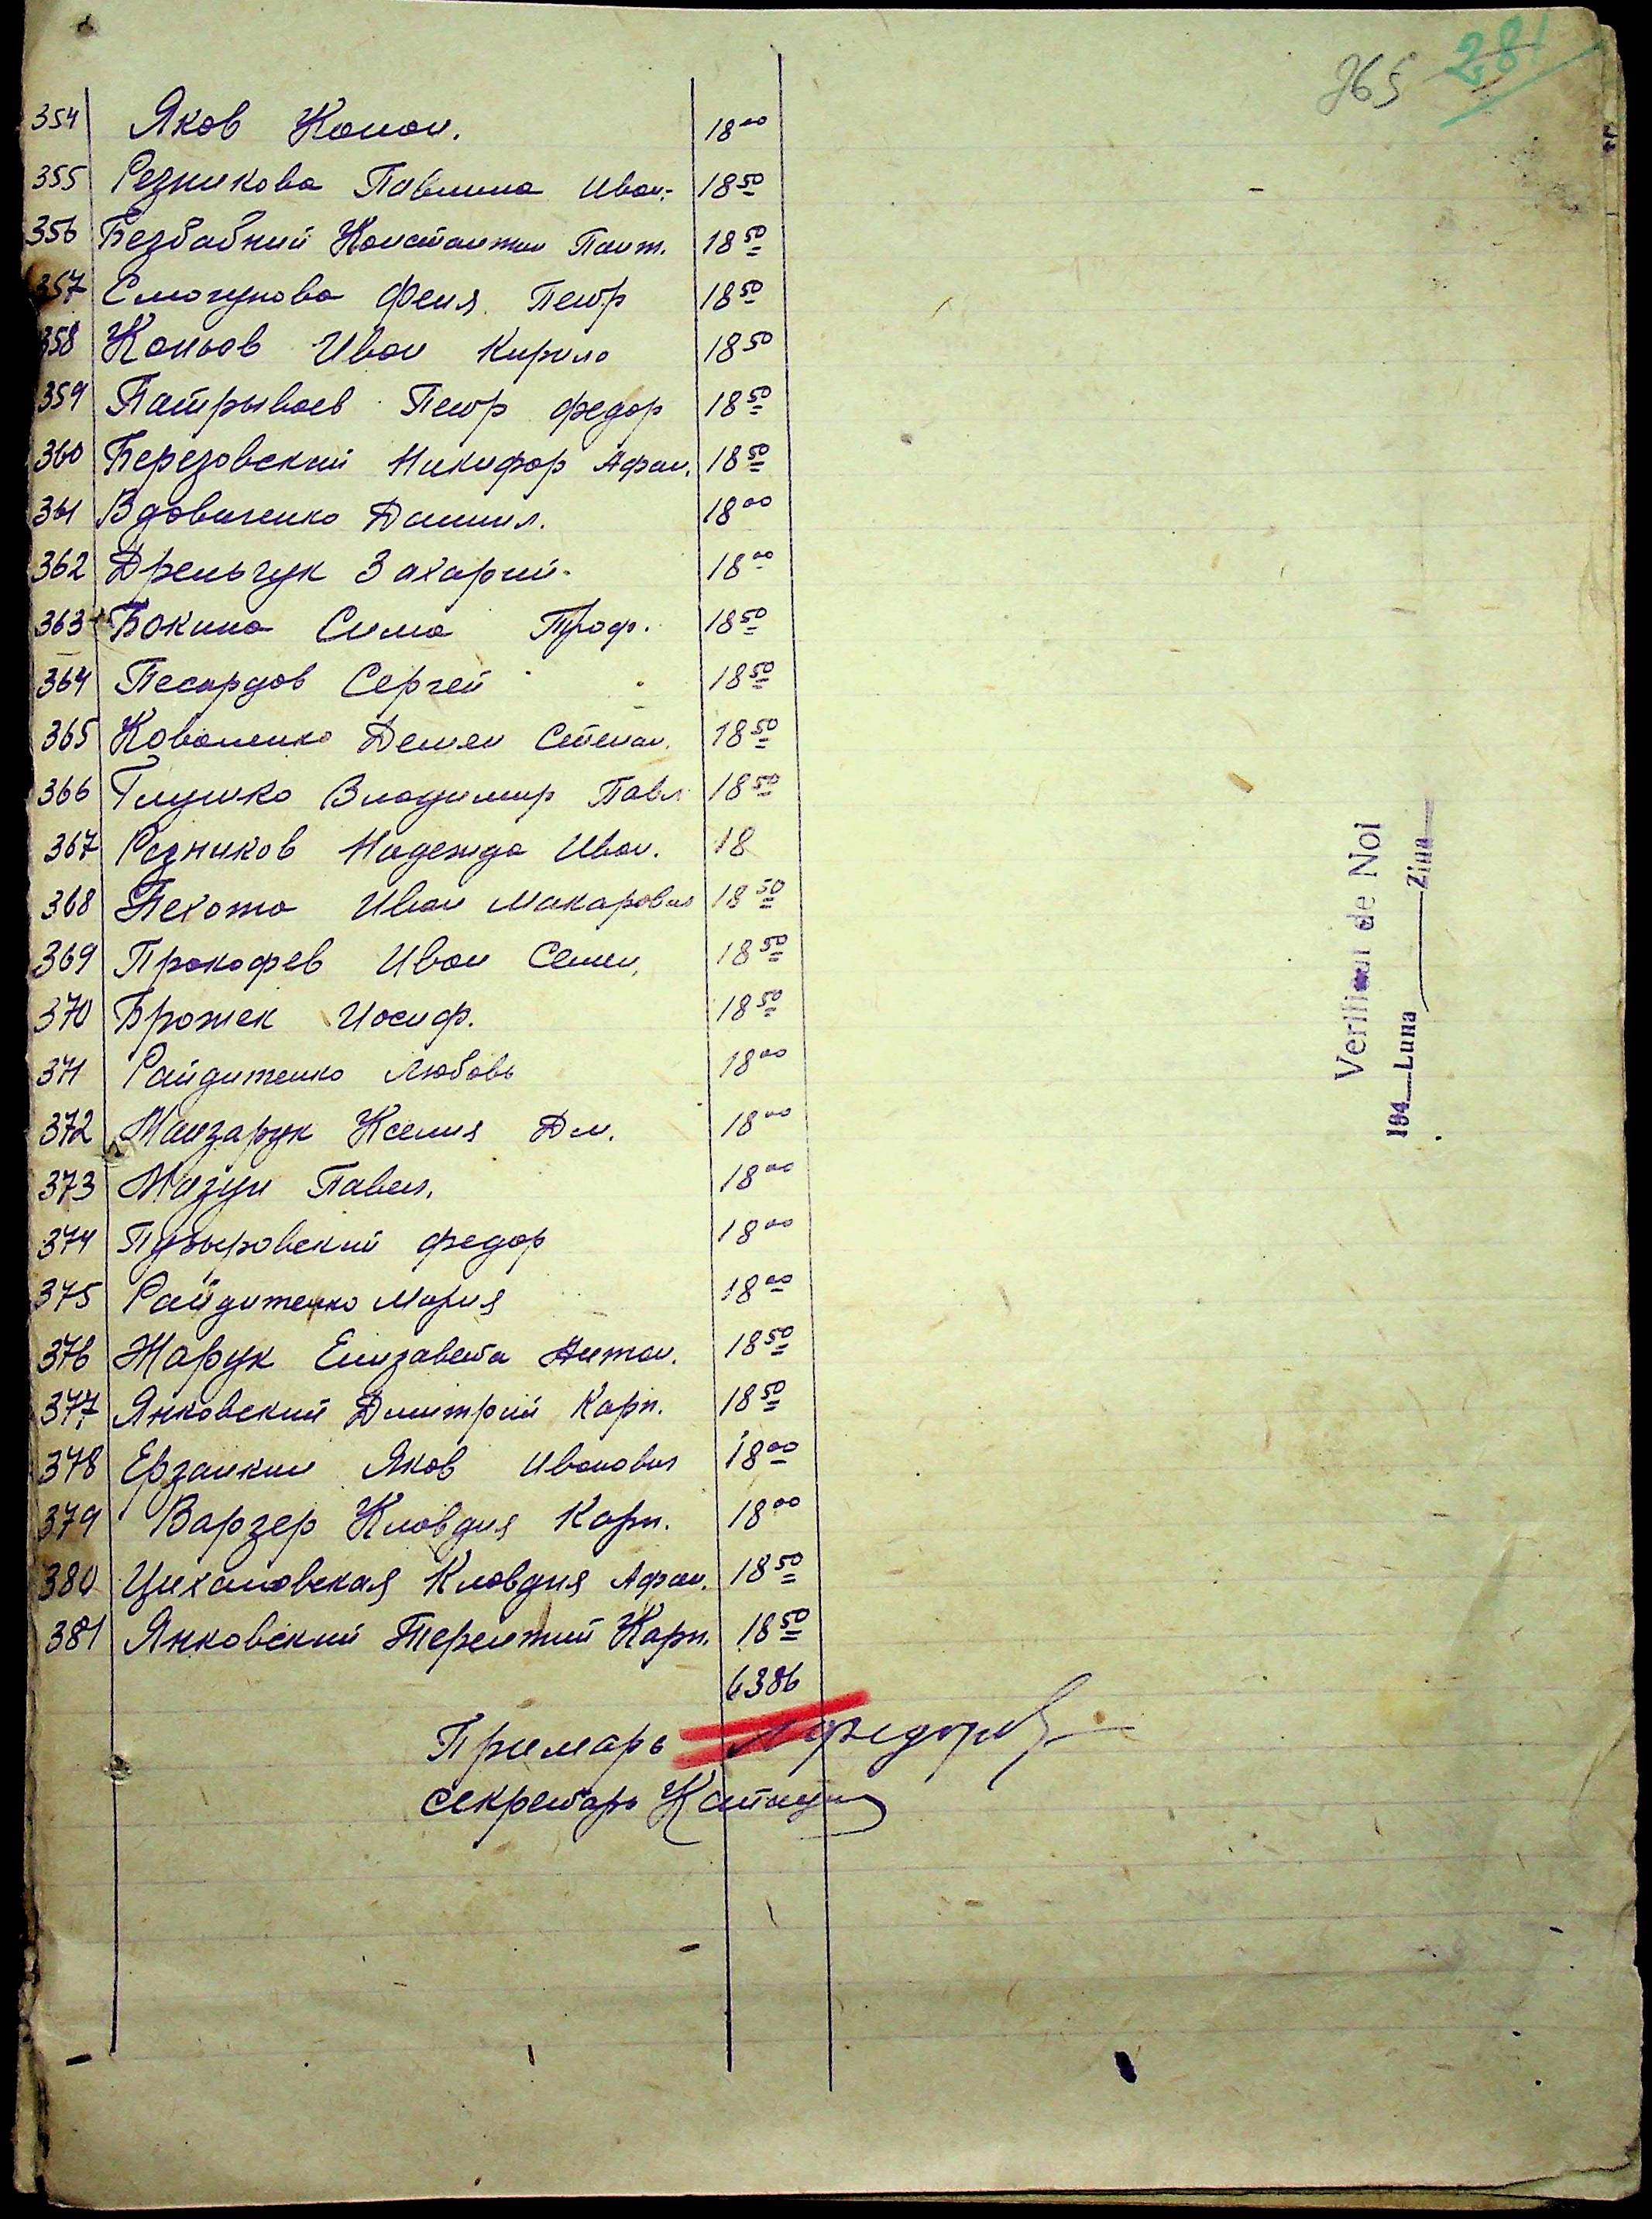 365 281
354 Яков Конон. 18 00
355 Резникова Павлина Иван. 18 50
356 Безбабний Константин Пант. 18 50
357 Смогунова Феня Петр 18 50
358 Коньов Иван Кирило 18 50
359 Патрываев Петр Федор 18 50
360 Березовский Никифор Афан. 18 50
361 Вдовиченко Даниил. 18 00
362 Дреньчук Захарий. 18 00
363 Бокина Сима Проф. 18 50
364 Песардов Сергей 18 50
365 Коваленко Демен Степан. 18 50
366 Глушко Владимир Павл 18 50
367 Резников Надежда Иван. 18
368 Пехота Иван Макарович 18 50
369 Прокофев Иван Семен. 18 50
370 Брожек Иосиф. 18 50
371 Райдитенко Любовь 18 00
372 Манзарук Ксения Дм. 18 00
373 Мазун Павел. 18 00
374 Пузыровский Федор 18 00
375 Райдитенко Мария 18 00
376 Жарук Елизавета Антон. 18 50
377 Янковский Дмитрий Карп. 18 50
378 Ерзанкин Яков Иванович 18 00
379 Варзер Кловдия Карп. 18 00
380 Цихановская Кловдия Афан. 18 50
381 Янковский Терентий Карп. 18 50
6386
Примарь Федоров
секретарь
Verificat de Noi
194 Luna Ziua